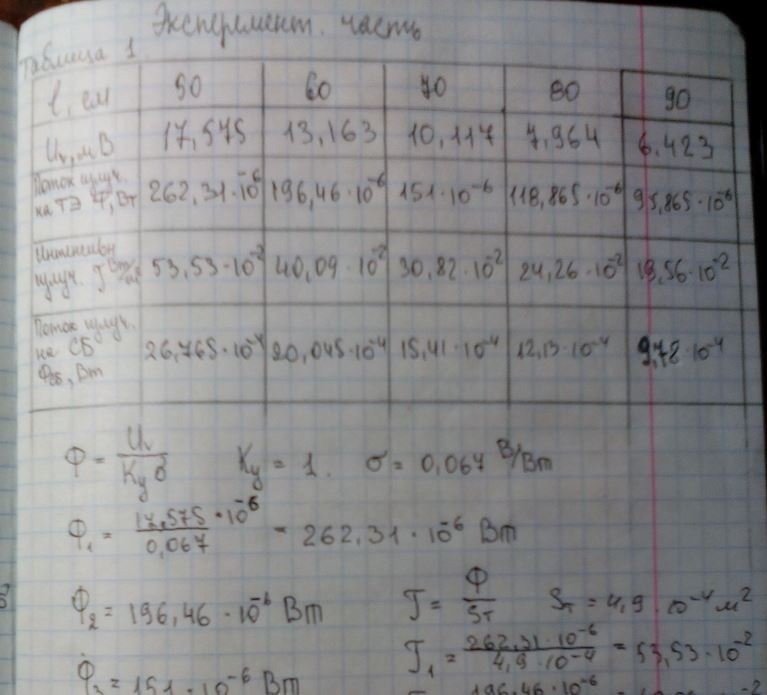 Эксперемент. часть
Таблица 1
l, см 50 60 70 80 90
Uv, мВ 17,575 13,163 10,117 7,964 6,423
Поток излуч. на ТЭ Ф, Вт 262,31·10⁻⁶ 196,46·10⁻⁶ 151·10⁻⁶ 118,865·10⁻⁶ 95,865·10⁻⁶
Интенсивн излуч. J Вт/м² 53,53·10⁻² 40,09·10⁻² 30,82·10⁻² 24,26·10⁻² 19,56·10⁻²
Поток излуч. на СБ Фсб, Вт 26,765·10⁻⁴ 20,045·10⁻⁴ 15,41·10⁻⁴ 12,13·10⁻⁴ 9,78·10⁻⁴
Ф = Uv / Kу σ Kу = 1. σ = 0,067 В/Вт
Ф₁ = 17,575·10⁻⁶ / 0,067 = 262,31·10⁻⁶ Вт
Ф₂ = 196,46·10⁻⁶ Вт J = Ф / Sт Sт = 4,9·10⁻⁴ м²
J₁ = 262,31·10⁻⁶ / 4,9·10⁻⁴ = 53,53·10⁻²
Ф₃ = 151·10⁻⁶ Вт
196,46·10⁻⁶